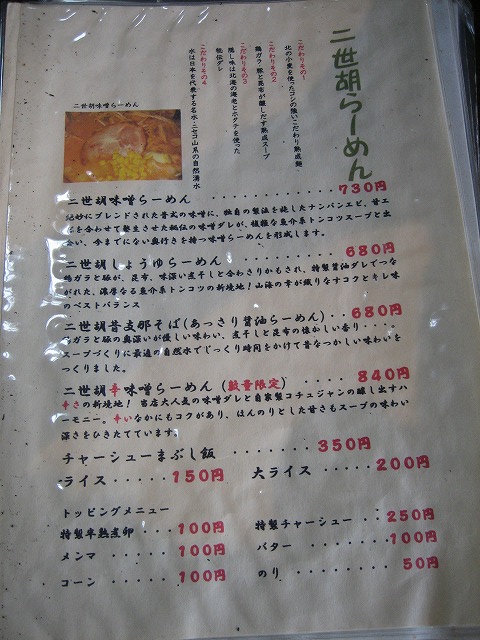 二世胡らーめん
こだわりその1
北の小麦を使ったコシの強いこだわり熟成麺
こだわりその2
鶏ガラ、豚と昆布が醸しだす熟成スープ
こだわりその3
隠し味は北海の海老とホタテを使った
秘伝ダシ
こだわりその4
水は日本を代表する名水・ニセコ山系の自然湧水
二世胡味噌らーめん
二世胡味噌らーめん ・・・・・・・・・・・・・・ 730円
絶妙にブレンドされた昔式の味噌に、独自の製法を施したナンバンエビ、甘エ
ビを合わせて発生させた秘伝の味噌ダレが、複雑な魚介系トンコツスープと出
会い、今までにない奥行きを持つ味噌らーめんを形成します。
二世胡しょうゆらーめん ・・・・・・・・・・ 680円
鶏ガラと豚が、昆布、味深い煮干しと合わさりかもされ、特製醤油ダレでつな
がれた、濃厚なる魚介系トンコツの新境地!山海の幸が織りなすコクとキレ味
のベストバランス
二世胡昔支那そば(あっさり醤油らーめん) ・・ 680円
鶏ガラと豚の奥深いが優しい味わい、煮干しと昆布の懐かしい香り・・・。
スープづくりに最適の自然水でじっくり時間をかけて昔なつかしい味わいを
つくりました。
二世胡辛味噌らーめん (数量限定) ・・・・ 840円
辛さの新境地! 当店大人気の味噌ダレと自家製コチュジャンの醸し出すハ
ーモニー。辛いなかにもコクがあり、ほんのりとした甘さもスープの味わい
深さをひきたてています。
チャーシューまぶし飯 ・・・・・・・ 350円
ライス ・・・・ 150円 大ライス ・・・・ 200円
トッピングメニュー
特製半熟煮卵 ・・・ 100円 特製チャーシュー ・・ 250円
メンマ ・・・・・ 100円 バター ・・・・・・・ 100円
コーン ・・・・・ 100円 のり ・・・・・・・・ 50円